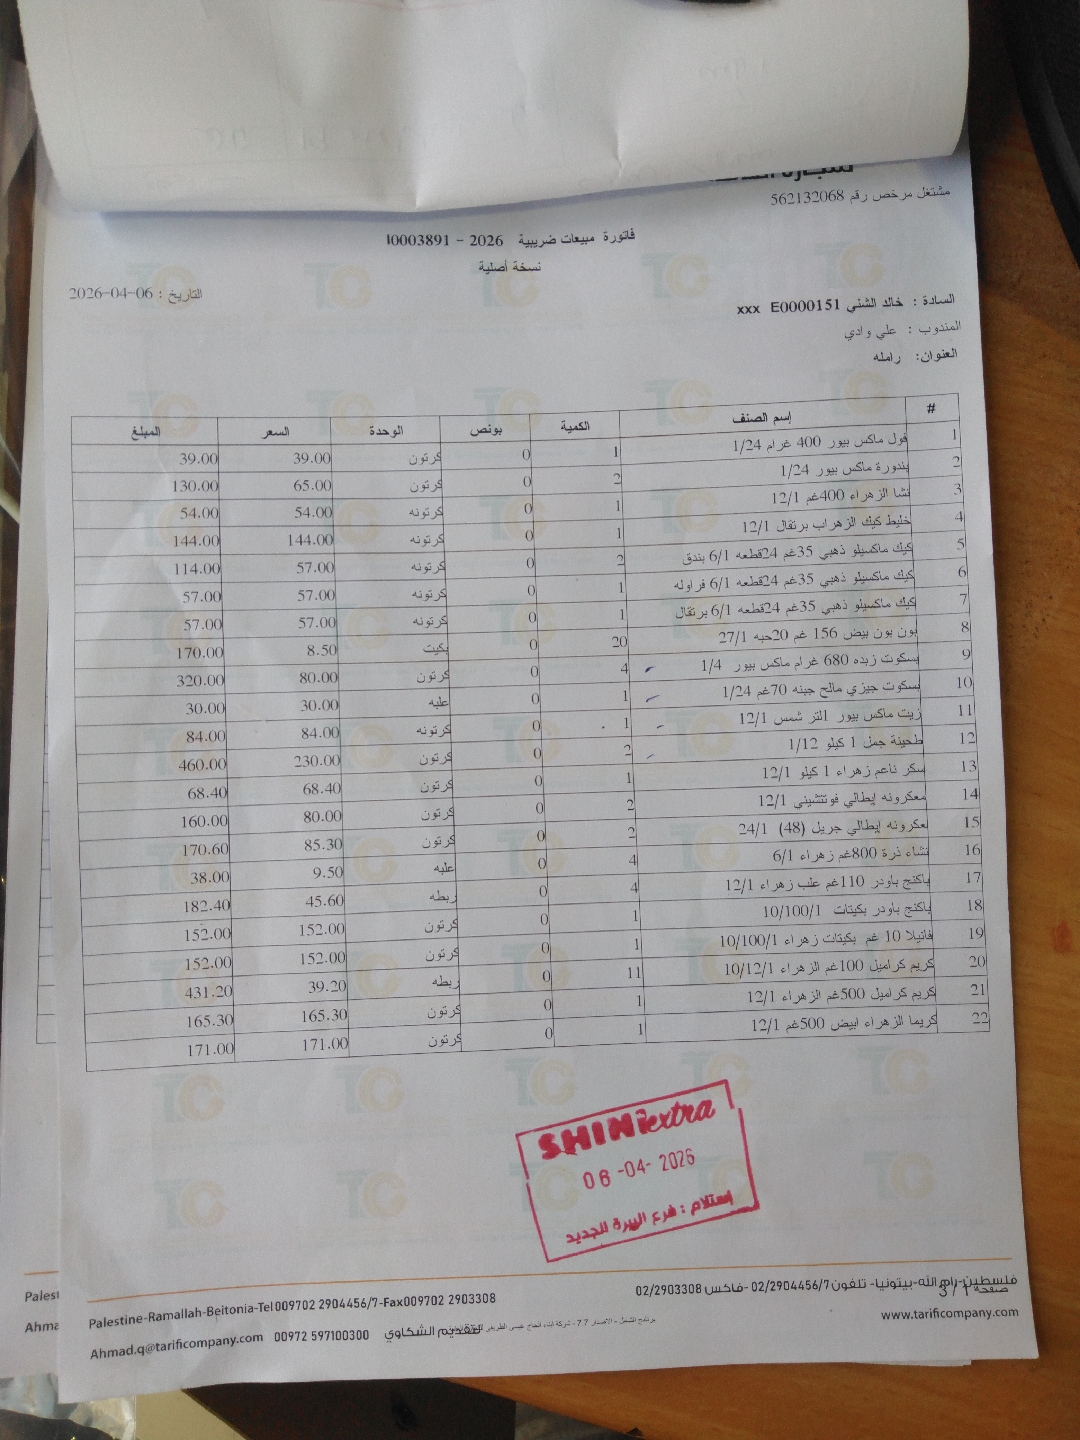 مشتغل مرخص رقم 562132068
فاتورة مبيعات ضريبية 2026 - I0003891
نسخة أصلية
التاريخ : 06-04-2026
السادة : خالد الشني E0000151 xxx
المندوب : علي وادي
العنوان: رامله
# إسم الصنف الكمية بونص الوحدة السعر المبلغ
1 فول ماكس بيور 400 غرام 1/24 1 0 كرتون 39.00 39.00
2 بندورة ماكس بيور 1/24 2 0 كرتون 65.00 130.00
3 نشا الزهراء 400غم 12/1 1 0 كرتونه 54.00 54.00
4 خليط كيك الزهراب برتقال 12/1 1 0 كرتونه 144.00 144.00
5 كيك ماكسيلو ذهبي 35غم 24قطعه 6/1 بندق 2 0 كرتونه 57.00 114.00
6 كيك ماكسيلو ذهبي 35غم 24قطعه 6/1 فراوله 1 0 كرتونه 57.00 57.00
7 كيك ماكسيلو ذهبي 35غم 24قطعه 6/1 برتقال 1 0 كرتونه 57.00 57.00
8 بون بون بيض 156 غم 20حبه 27/1 20 0 بكيت 8.50 170.00
9 بسكوت زبده 680 غرام ماكس بيور 1/4 4 0 كرتون 80.00 320.00
10 بسكوت جيزي مالح جبنه 70غم 1/24 1 0 علبه 30.00 30.00
11 زيت ماكس بيور التر شمس 12/1 1 0 كرتونه 84.00 84.00
12 طحينة جمل 1 كيلو 1/12 2 0 كرتون 230.00 460.00
13 سكر ناعم زهراء 1 كيلو 12/1 1 0 كرتون 68.40 68.40
14 معكرونه إيطالي فوتتشيني 12/1 2 0 كرتون 80.00 160.00
15 عكرونه إيطالي جريل (48) 24/1 2 0 كرتون 85.30 170.60
16 نشاء ذرة 800غم زهراء 6/1 4 0 علبه 9.50 38.00
17 باكنج باودر 110غم علب زهراء 12/1 4 0 ربطه 45.60 182.40
18 باكنج باودر بكيتات 10/100/1 1 0 كرتون 152.00 152.00
19 فانيلا 10 غم بكيتات زهراء 10/100/1 1 0 كرتون 152.00 152.00
20 كريم كراميل 100غم الزهراء 10/12/1 11 0 ربطه 39.20 431.20
21 كريم كراميل 500غم الزهراء 12/1 1 0 كرتون 165.30 165.30
22 كريما الزهراء ابيض 500غم 12/1 1 0 كرتون 171.00 171.00
SHINI extra
06 -04- 2026
إستلام : فرع البيرة الجديد
فلسطين-رام الله-بيتونيا- تلفون 02/2904456/7 -فاكس 02/2903308
صفحة 1 / 3
Palestine-Ramallah-Beitonia-Tel009702 2904456/7-Fax009702 2903308
www.tarificompany.com
Ahmad.q@tarificompany.com 00972 597100300 لتقديم الشكاوي
Palest
Ahma